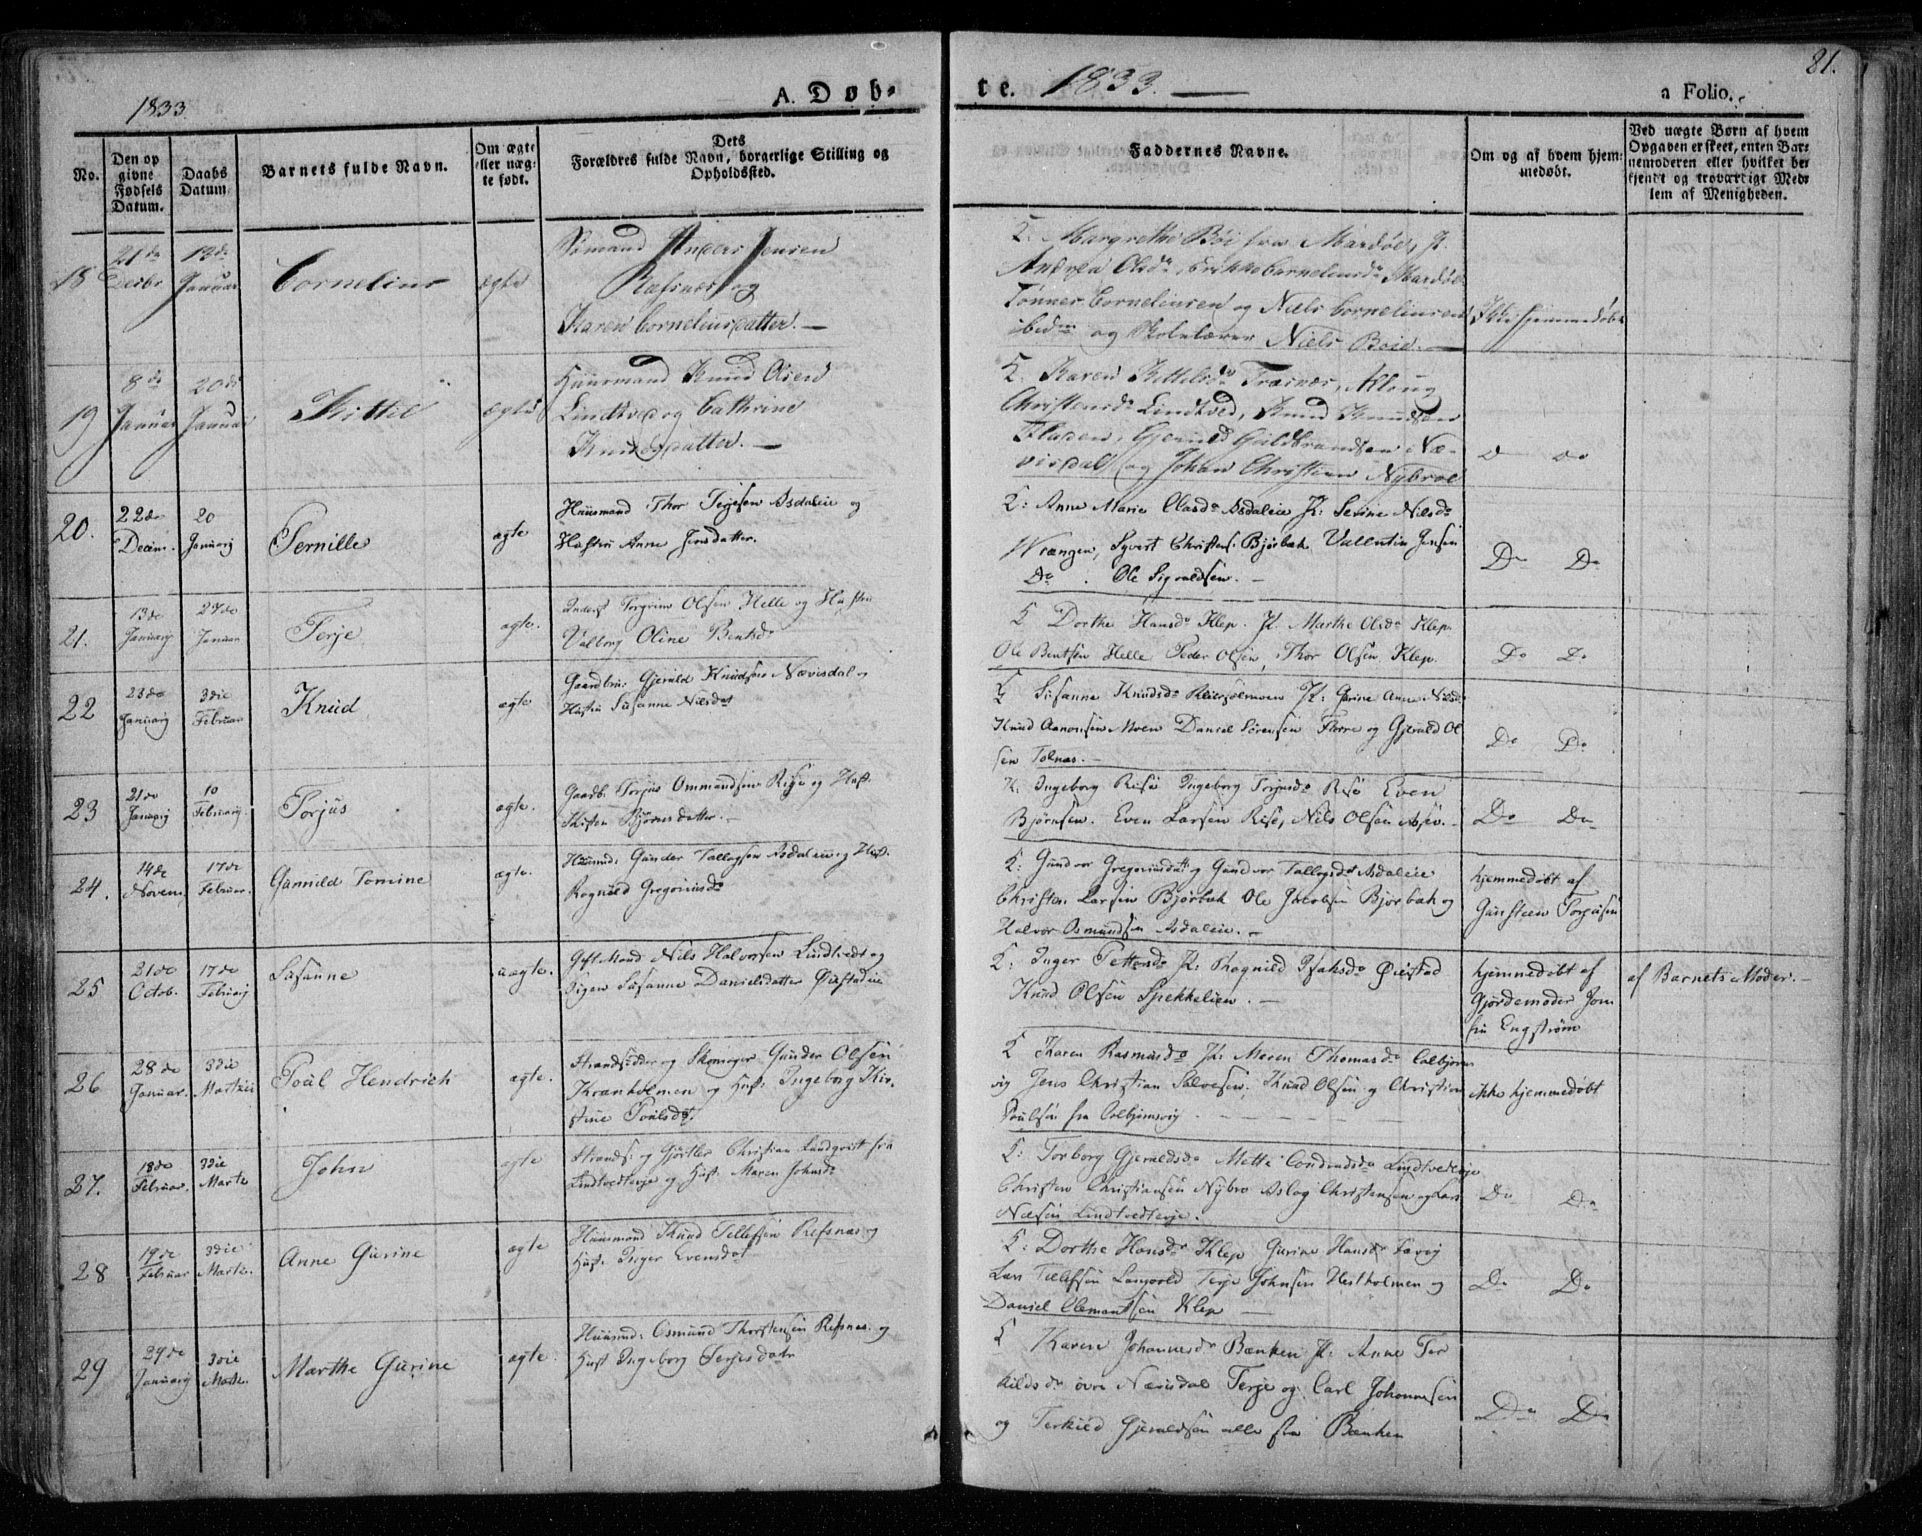 1833.
A. Døb-
te. 1833.
a Folio.
81.
No.
Den op
givne
Fødsels
Datum.
Daabs
Datum.
Barnets fulde Navn.
Om ægte
eller næg-
te født.
Dets
Forældres fulde Navn, borgerlige Stilling og
Opholdssted.
Faddernes Navne.
Om og af hvem hjem-
medøbt.
Ved uægte Børn af hvem
Opgaven er skeet, enten Bar-
nemoderen eller hvilket be-
kjendt og troværdigt Med-
lem af Menigheden.
18
21de
Decbr
13de
Januar
Cornelius
ægte
Anders Jensen
Refsnes og
Karen Corneliusdatter.
Margrethe Boi fra Mardøe, J.
Andrea Olsd. Cornelensd. Mardøe
Tønnes Cornelensen og Niels Cornelensen
ibidm og Skolelærer Niels Boie.
Ikke hjemmedøbt
19
8de
Januar
20de
Januar
Kittil
ægte
Huusmand Knud Olsen
Lindtved og Cathrine
Knudsdatter.
K. Karen Kittelsd. Aslaug
Christensd. Lindtved, Knud Knudsen
Fladen, Gjeruld Guldbrandsen Næ-
visdal og Johan Christian Nybroe
Do Do
20.
22de
Decem.
20
Januarij
Pernille
ægte
Huusmand Thor Terjesen Asdalen og
Hustru Anne Jensdatter.
K: Anne Marie Olasdr Asdalen J: Serine Nilsdr
Wrangen, Syvert Christens. Bjørbæk Vallentin Jensen
Do. Ole Sigvaldsen.
Do Do
21.
13de
Januarij
27de
Januar
Terje
ægte.
Inderst Torgrim Olsen Helle og Hustru
Valborg Oline Bentsdr
K Dorthe Hansdr Klep. J: Marthe Olsdr Klep.
Ole Bentsen Helle Peder Olsen, Thor Olsen Klep.
Do Do
22
23de
Januarij
3die
Februar
Knud
ægte
Gaardbru: Gjeruld Knudsen Nævisdal og
Hustru Susanne Nilsdtr
K Susanne Knudsdr J: Gurine Anne Nilsd.
Knud Aanonsen Moen Daniel Sørensen og Gjeruld Ol
sen Tolnæs.
Do Do
23
21de
Januarij
10
Februarij.
Torjus
ægte.
Gaardb. Torjus Ommundsen Risøe og Hust.
Kisten Bjørnsdatter.
K: Ingeborg Risøe Ingeborg Torjusdr Risø Even
Bjørnsen. Even Larsen Risø, Nils Olsen
Do Do
24.
14de
Novem.
17de
Februar.
Gunnild Tomine
ægte.
Huusmd: Gunder Tallagsen Asdalen og Hust.
Rognild Gregoriusdr
K: Gundvor Gregoriusdtr og Gundvor Tallagsdr Asdalen
Christen Larsen Bjørbæk Ole Jacobsen Bjørbæk og
Halvor Osmundsen Asdalen.
hjemmedøbt af
Gunsteen Torgiusen
25
21de
Octob.
17de
Februarij
Susanne
uægte.
Gift Mand Nils Halvorsen Lindtvedt og
Pigen Susanne Danielsdatter Øiestad
K: Inger Pettersdr J: Ragnild Isaksdr Øiestad
Knud Olsen Spekkelien.
hjemmedøbt af
Gjordemoder Jom
fru Engstrøm
af Barnets Moder.
26
28de
Januar.
3die
Martzii
Poul Hendrich
ægte.
Strandsidder og Skomager Gunder Olsen
Kranholmen og Hust: Ingeborg Kir
stine Poulsdtr.
K Karen Rasmusdr J: Maren Thomasdr Colbjørns
vig Jens Christian Salvesen, Knud Olsen og Christian
Poulsen fra Colbjørnsvig
ikke hjemmedøbt
27.
18de
Februar.
3die
Marts
John
ægte
Strands: og Gjørtler Christian Lundqvist fra
Lindtvedterje og Hust: Maren Johnsdr
K: Torborg Gjeruldsdr Mette Lindtvedterje
Christen Christiansen Nybro Aslag Christensen og Lars
Næsen Lindtvedterje.
Do Do
28
19de
Februar
3die
Marts.
Anne Gurine
ægte
Huusmand Knud Tellefsen Refsnæs og
Hust: Inger Evensdtr
K: Dorthe Hansdr Klep Gurine Hansdr Favig
Lars Tellefsen Terje Johnsen Hestholmen og
Daniel Clemmentsen Klep
Do Do
29
24de
Januarij
3die
Marts.
Marthe Gurine
ægte.
Huusmd: Osmund Thorstensen Refsnæs og
Hust Ingeborg Terjesdatr
K Karen Johannesdr Bænken J: Anne Ter
kildsdr øvre Nævisdal Terje og Carl Johannesen
og Terkild Gjeruldsen alle fra Bænken
Do Do